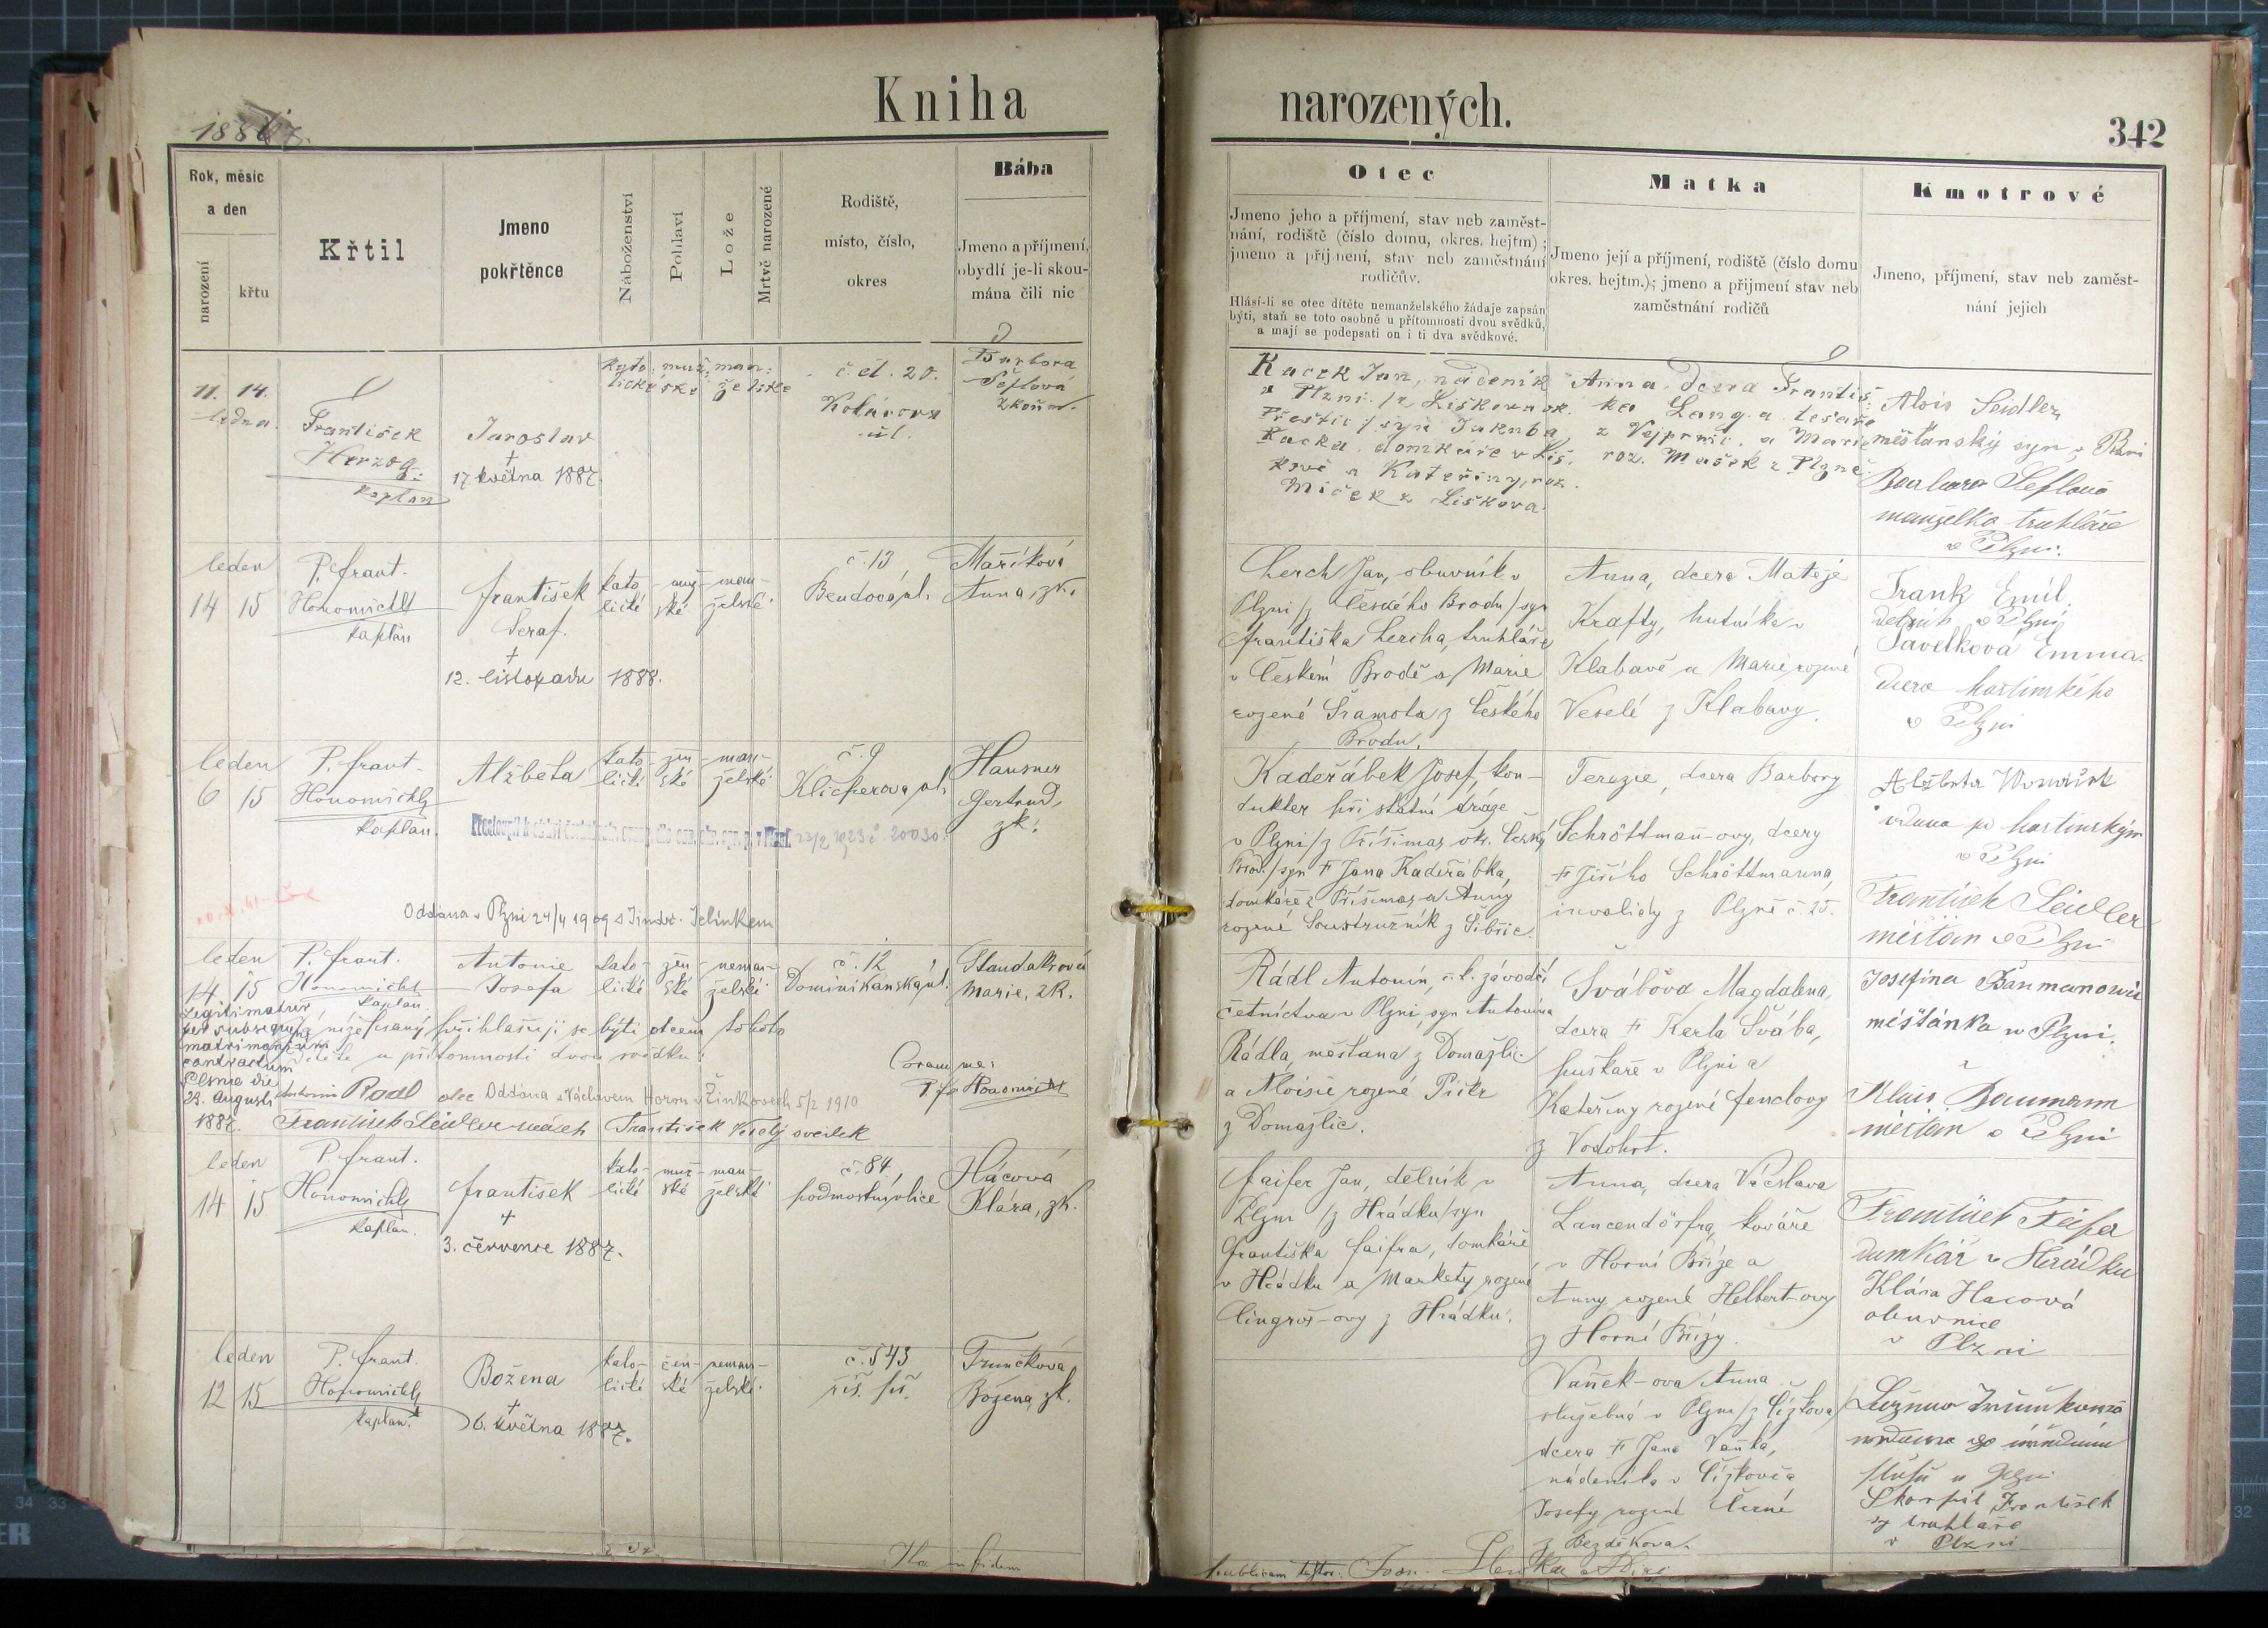 Kniha
narozených.
342
Rok, měsíc
a den
narození
křtu
Křtil
Jmeno
pokřtěnce
Náboženství
Pohlaví
Lože
Mrtvě narozené
Rodiště,
místo, číslo,
okres
Bába
Jmeno a příjmení,
obydlí je-li skou-
mána čili nic
Otec
Jmeno jeho a příjmení, stav neb zaměst-
nání, rodiště (číslo domu, okres. hejtm) ;
jmeno a příjmení, stav neb zaměstnání
rodičův.
Hlásí-li se otec dítěte nemanželského žádaje zapsán
býti, staň se toto osobně u přítomnosti dvou svědků,
a mají se podepsati on i ti dva svědkové.
Matka
Jmeno její a příjmení, rodiště (číslo domu
okres. hejtm.); jmeno a příjmení stav neb
zaměstnání rodičů
Kmotrové
Jmeno, příjmení, stav neb zaměst-
nání jejich
11. 14.
ledna
František
Herzog
kaplan
Jaroslav
†
17 května 1887.
kato- muž- man-
lické ské želské
20.
Barbora
Šeflová
zkouš.
Kacek Jan, nádeník
v Plzni /z Liškova ok.
Přeštic/ syn Jakuba
Kacka domkáře v Liš-
kově a Kateřiny, roz.
Míček z Liškova.
Anna dcera Františ-
ka Lang a tesaře
z Vejprnic a Marie
roz. Mašek z Plzně.
Alois Seidler
měšťanský syn v Plzni
Barbora Šeflová
manželka truhláře
v Plzni.
leden
14 15
P. Frant.
Honomichl
kaplan
František
Seraf.
†
12. listopadu 1888.
kato- muž- man-
lické ské želské
č. 13
Maříková
Anna, zk.
Lerch Jan, obuvník v
Plzni /z Českého Brodu/ syn
Františka Lercha, truhláře
v Českém Brodě a Marie
rozené Šramota z Českého
Brodu.
Anna, dcera Matěje
Krafty, hutníka v
Klabavě a Marie rozené
Veselé z Klabavy.
Frank Emil
dělník v Plzni
Pavelková Emma
dcera hostinského
v Plzni
leden
6 15
P. Frant.
Honomichl
kaplan.
Alžběta
kato- žen- man-
lické ské želské
č. 9
Klicperova ul.
Hausner
Gertrud,
zk.
23/2 1923 č. 20030.
Oddána v Plzni 24/4 1909 s Jindř. Jelínkem
Kadeřábek Josef, kon-
dukter při státní dráze
v Plzni /z Příšimas okr. Český
Brod/ syn † Jana Kadeřábka,
domkáře z Příšimas a Anny
rozené Soustružník z Šibřic.
Terezie, dcera Barbory
Schröttmann-ovy, dcery
† Jiřího Schröttmanna,
invalidy z Plzně č. 25.
Alžběta
vdova po hostinským
v Plzni
František Seidler
měšťan v Plzni
leden
14 15
P. Frant.
Honomichl
kaplan.
Antonie
Josefa
kato- žen- neman-
lické ské želské
č. 12
Dominikánská ul.
Marie, zk.
Legitimatur
per subsequens
matrimonium
contractum
Plsnae die
23. Augusti
1887.
Já níže psaný přihlašuji se býti otcem tohoto
dítěte u přítomnosti dvou svědků:
Coram me:
P. Fr. Honomichl
Antonín Radl otec Oddána s Václavem Horou v Žinkovech 5/2 1910
František Seidler svědek František Veselý svědek
Rádl Antonín, c.k. závodčí
četnictva v Plzni, syn Antonína
Rádla, měšťana z Domažlic
a Aloisie rozené
z Domažlic.
Švábova Magdalena,
dcera † Karla Švába,
puškaře v Plzni a
Kateřiny rozené Fenclovy
z Vodokrt.
Josefina Baumanowá
měšťánka w Plzni.
Alois Baumann
měšťan v Plzni
leden
14 15
P. Frant.
Honomichl
kaplan.
František
†
3. července 1887.
kato- muž- man-
lické ské želské
č. 84,
podmostní ulice
Hácová
Klára, zk.
Faifer Jan, dělník v
Plzni /z Hrádku/ syn
Františka Faifra, domkáře
v Hrádku a Markety rozené
z Hrádku.
Anna, dcera Václava
Lancendörfra, kováře
v Horní Bříze a
Anny rozené Helbert-ovy
z Horní Břízy.
František
domkář v Hrádku
Klára Hacová
obuvnice
v Plzni
leden
12 15
P. Frant.
Honomichl
kaplan.
Božena
†
6. května 1887.
kato- žen- neman-
lické ské želské
č. 543
říš. př.
Trunečková
Božena, zk.
Vaňek-ova Anna
služebná v Plzni /z Čížkova/
dcera † Jana Vaňka,
nádeníka v Čížkově a
Josefy rozené Černé
z Bezděkova.
v Plzni
Skorpil František
truhláře
v Plzni